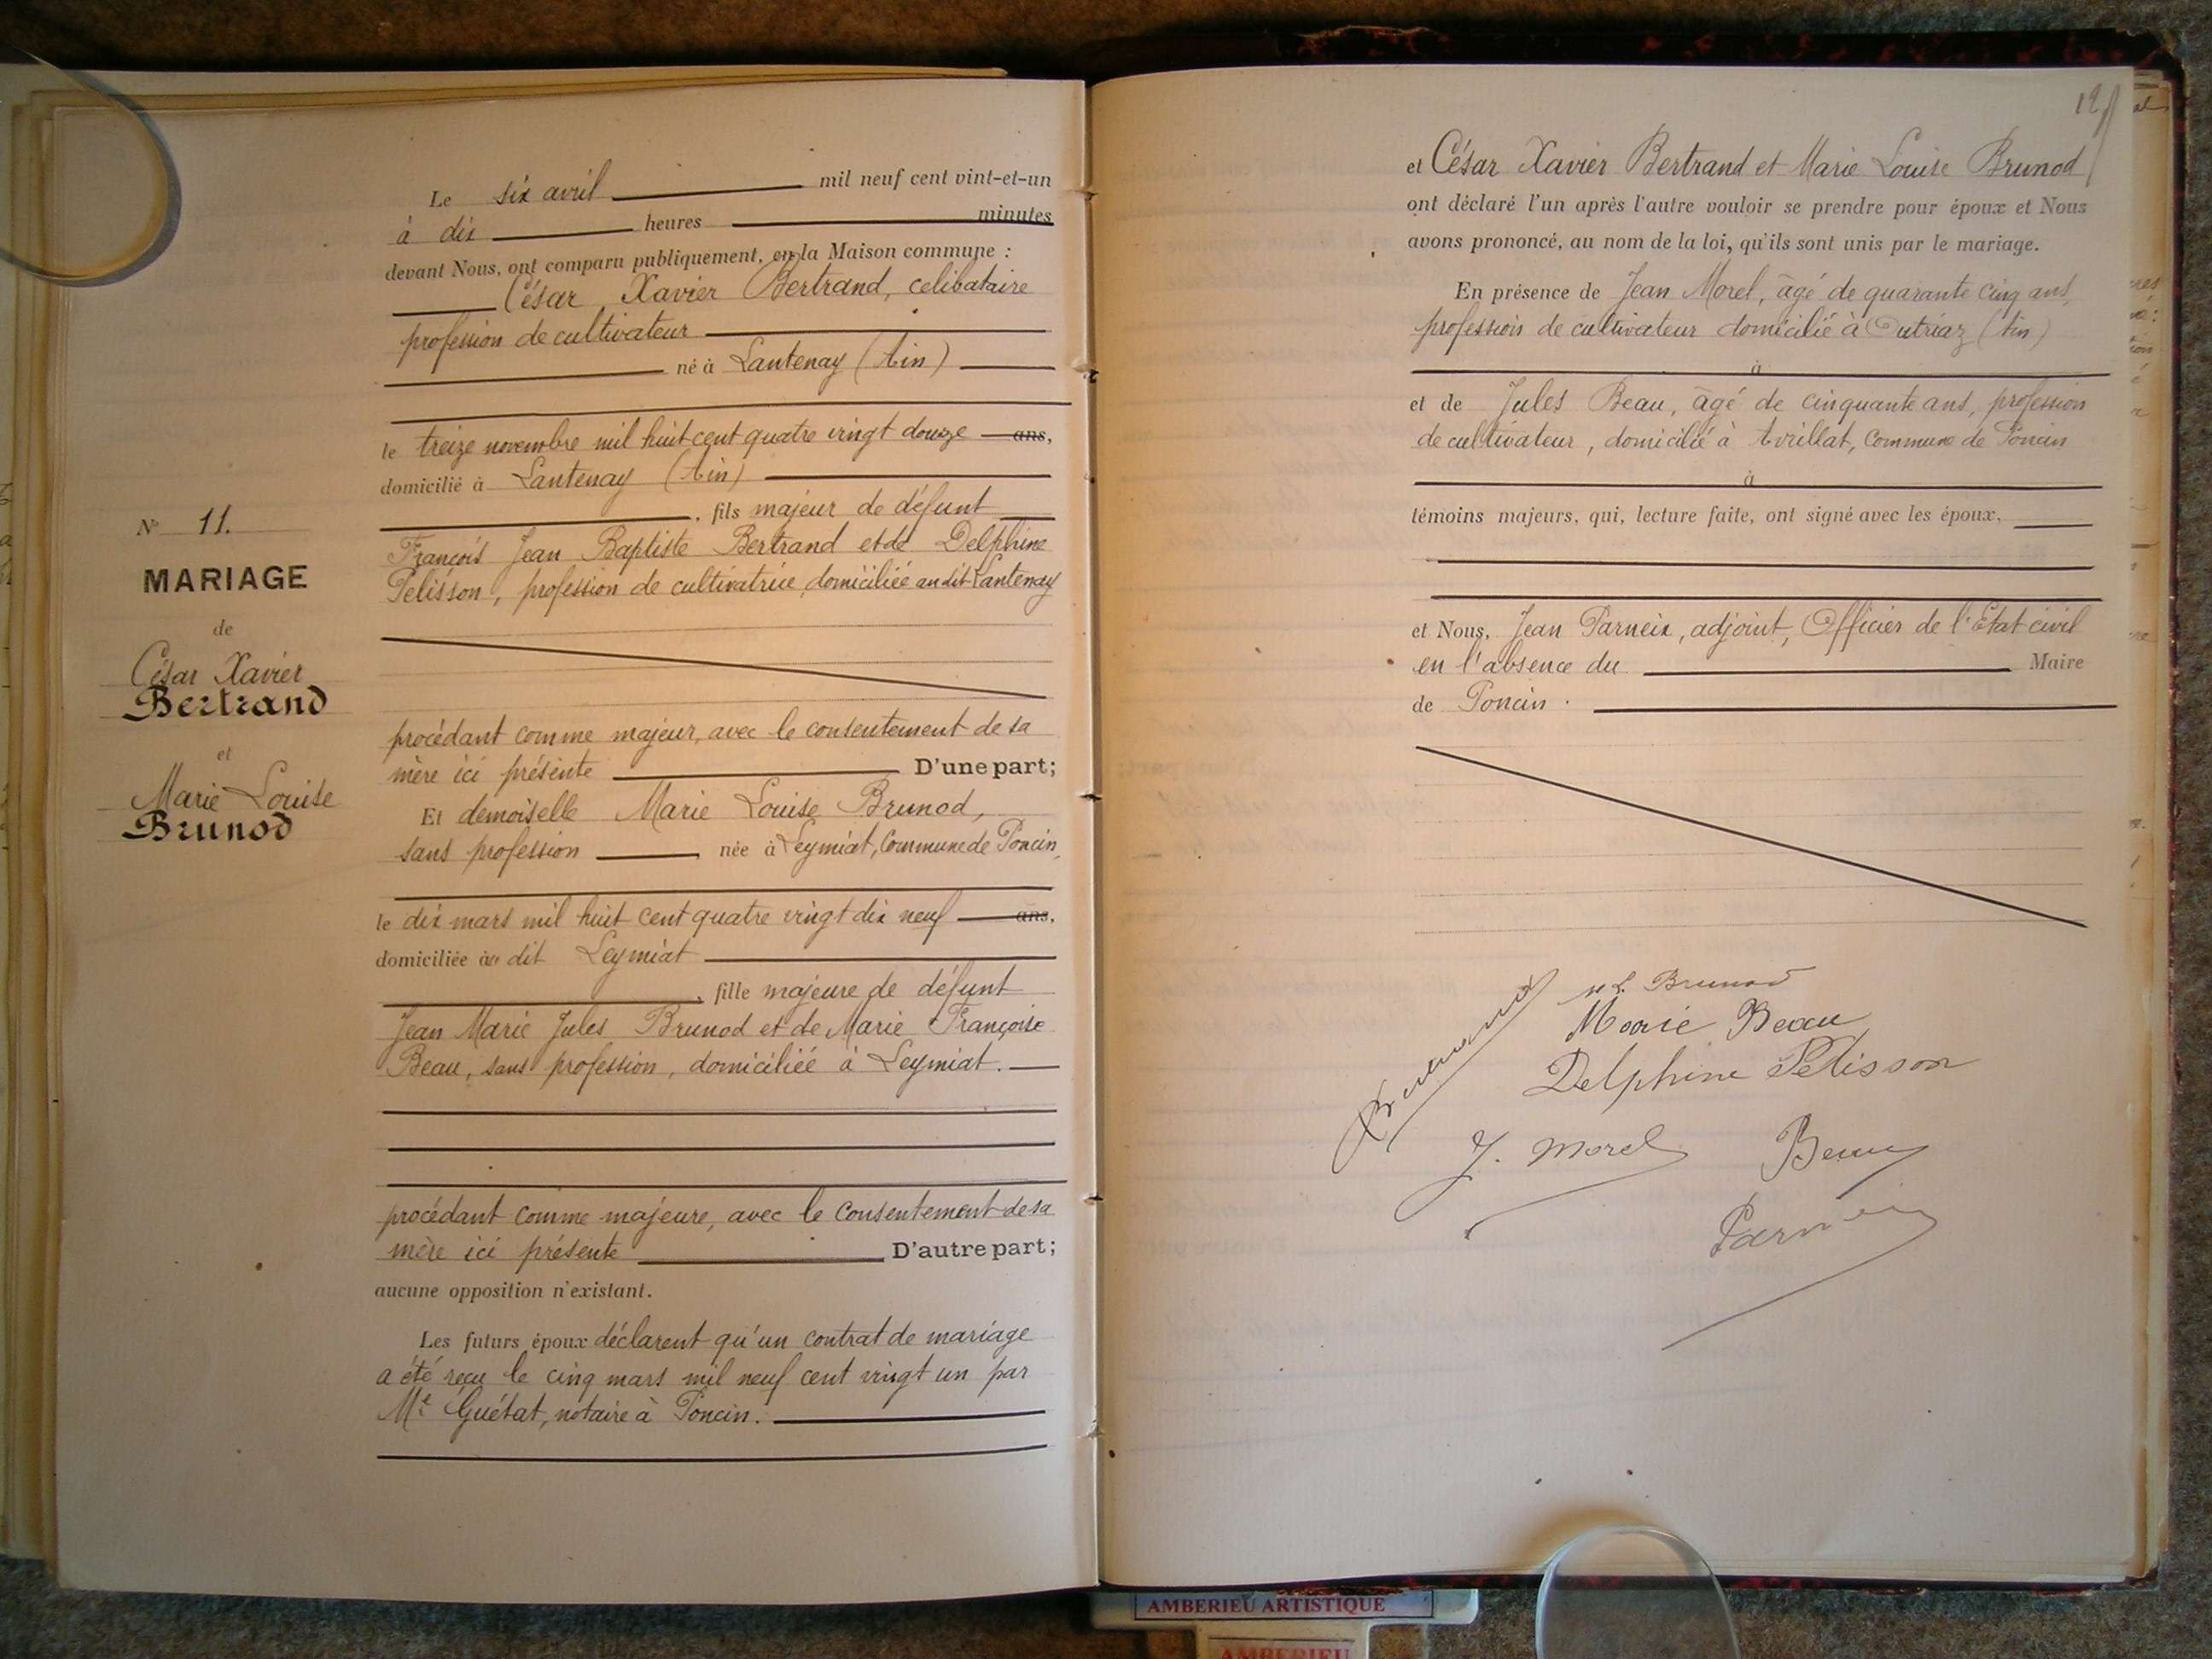 Le six avril mil neuf cent vint-et-un
à dix heures minutes
devant Nous, ont comparu publiquement, en la Maison commune :
César Xavier Bertrand, celibataire
profession de cultivateur
né à Lantenay (Ain)
le treize novembre mil huit cent quatre vingt douze ans,
domicilié à Lantenay (Ain)
, fils majeur de défunt
François Jean Baptiste Bertrand et de Delphine
Pelisson, profession de cultivatrice, domiciliée audit Lantenay
N° 11.
MARIAGE
de
César Xavier
Bertrand
et
Marie Louise
Brunod
procédant comme majeur, avec le consentement de sa
mère ici présente D'une part;
Et demoiselle Marie Louise Brunod,
sans profession née à Leymiat, Commune de Poncin,
le dix mars mil huit cent quatre vingt dix neuf ans,
domiciliée au dit Leymiat
, fille majeure de défunt
Jean Marie Jules Brunod et de Marie Françoise
Beau, sans profession, domiciliée à Leymiat.
procédant comme majeure, avec le consentement de sa
mère ici présente D'autre part;
aucune opposition n'existant.
Les futurs époux déclarent qu'un contrat de mariage
a été reçu le cinq mars mil neuf cent vingt un par
Me Guétat, notaire à Poncin.
12
et César Xavier Bertrand et Marie Louise Brunod
ont déclaré l'un après l'autre vouloir se prendre pour époux et Nous
avons prononcé, au nom de la loi, qu'ils sont unis par le mariage.
En présence de Jean Morel, âgé de quarante cinq ans,
profession de cultivateur domicilié à Outriaz (Ain)
à
et de Jules Beau, âgé de cinquante ans, profession
de cultivateur, domicilié à Avrillat, Commune de Poncin
à
témoins majeurs, qui, lecture faite, ont signé avec les époux.
et Nous, Jean Parneix, adjoint, Officier de l'Etat civil
en l'absence du Maire
de Poncin.
M L Brunod
Marie Beau
Delphine Pelisson
Bertrand
J. Morel Beau
Parneix
AMBERIEU ARTISTIQUE
AMBERIEU